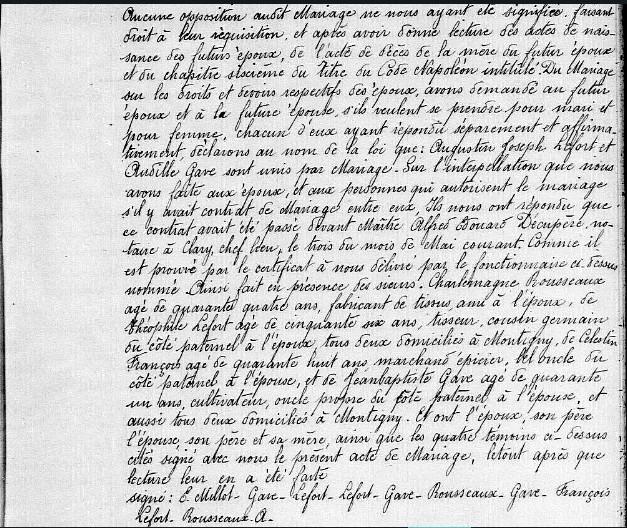 Aucune opposition audit Mariage ne nous ayant été signifiée, faisant
droit à leur réquisition, et après avoir donné lecture des actes de nais-
sance des futurs époux, de l'acte de décès de la mère du futur époux
et du chapitre sixième du titre du Code Napoléon intitulé: Du Mariage
sur les droits et devoirs respectifs des époux, avons demandé au futur
époux et à la future épouse, s'ils veulent se prendre pour mari et
pour femme, chacun d'eux ayant répondu séparement et affirma-
tivement déclarons au nom de la loi que: Augustin Joseph Lefort et
Gave sont unis par Mariage. Sur l'interpellation que nous
avons faite aux époux, et aux personnes qui autorisent le mariage
s'il y avait contrat de Mariage entre eux, Ils nous ont répondu que
ce contrat avait été passé devant Maître Alfred Edouard Décupère, no-
taire à Clary, chef lieu, le trois du mois de Mai courant. Comme il
est prouvé par le certificat à nous délivré par le fonctionnaire ci-dessus
nommé. Ainsi fait en présence des sieurs: Charlemagne Rousseaux
agé de quarante quatre ans, fabricant de tissus ami à l'époux, de
Théophile Lefort agé de cinquante six ans, tisseur, cousin germain
du côté paternel à l'époux, tous deux domiciliés à Montigny, de Célestin
François agé de quarante huit ans, marchand épicier, bel oncle du
côté paternel à l'épouse, et de Jeanbaptiste Gave agé de quarante
un ans, cultivateur, oncle propre du côté paternel à l'épouse, et
aussi tous deux domiciliés à Montigny. Et ont l'époux, son père
l'épouse, son père et sa mère, ainsi que les quatre témoins ci-dessus
cités signé avec nous le présent acte de Mariage, letout après que
lecture leur en a été faite
signé: E. Millot - Gave - Lefort - Lefort - Gave - Rousseaux - Gave - François
Lefort - Rousseaux A -